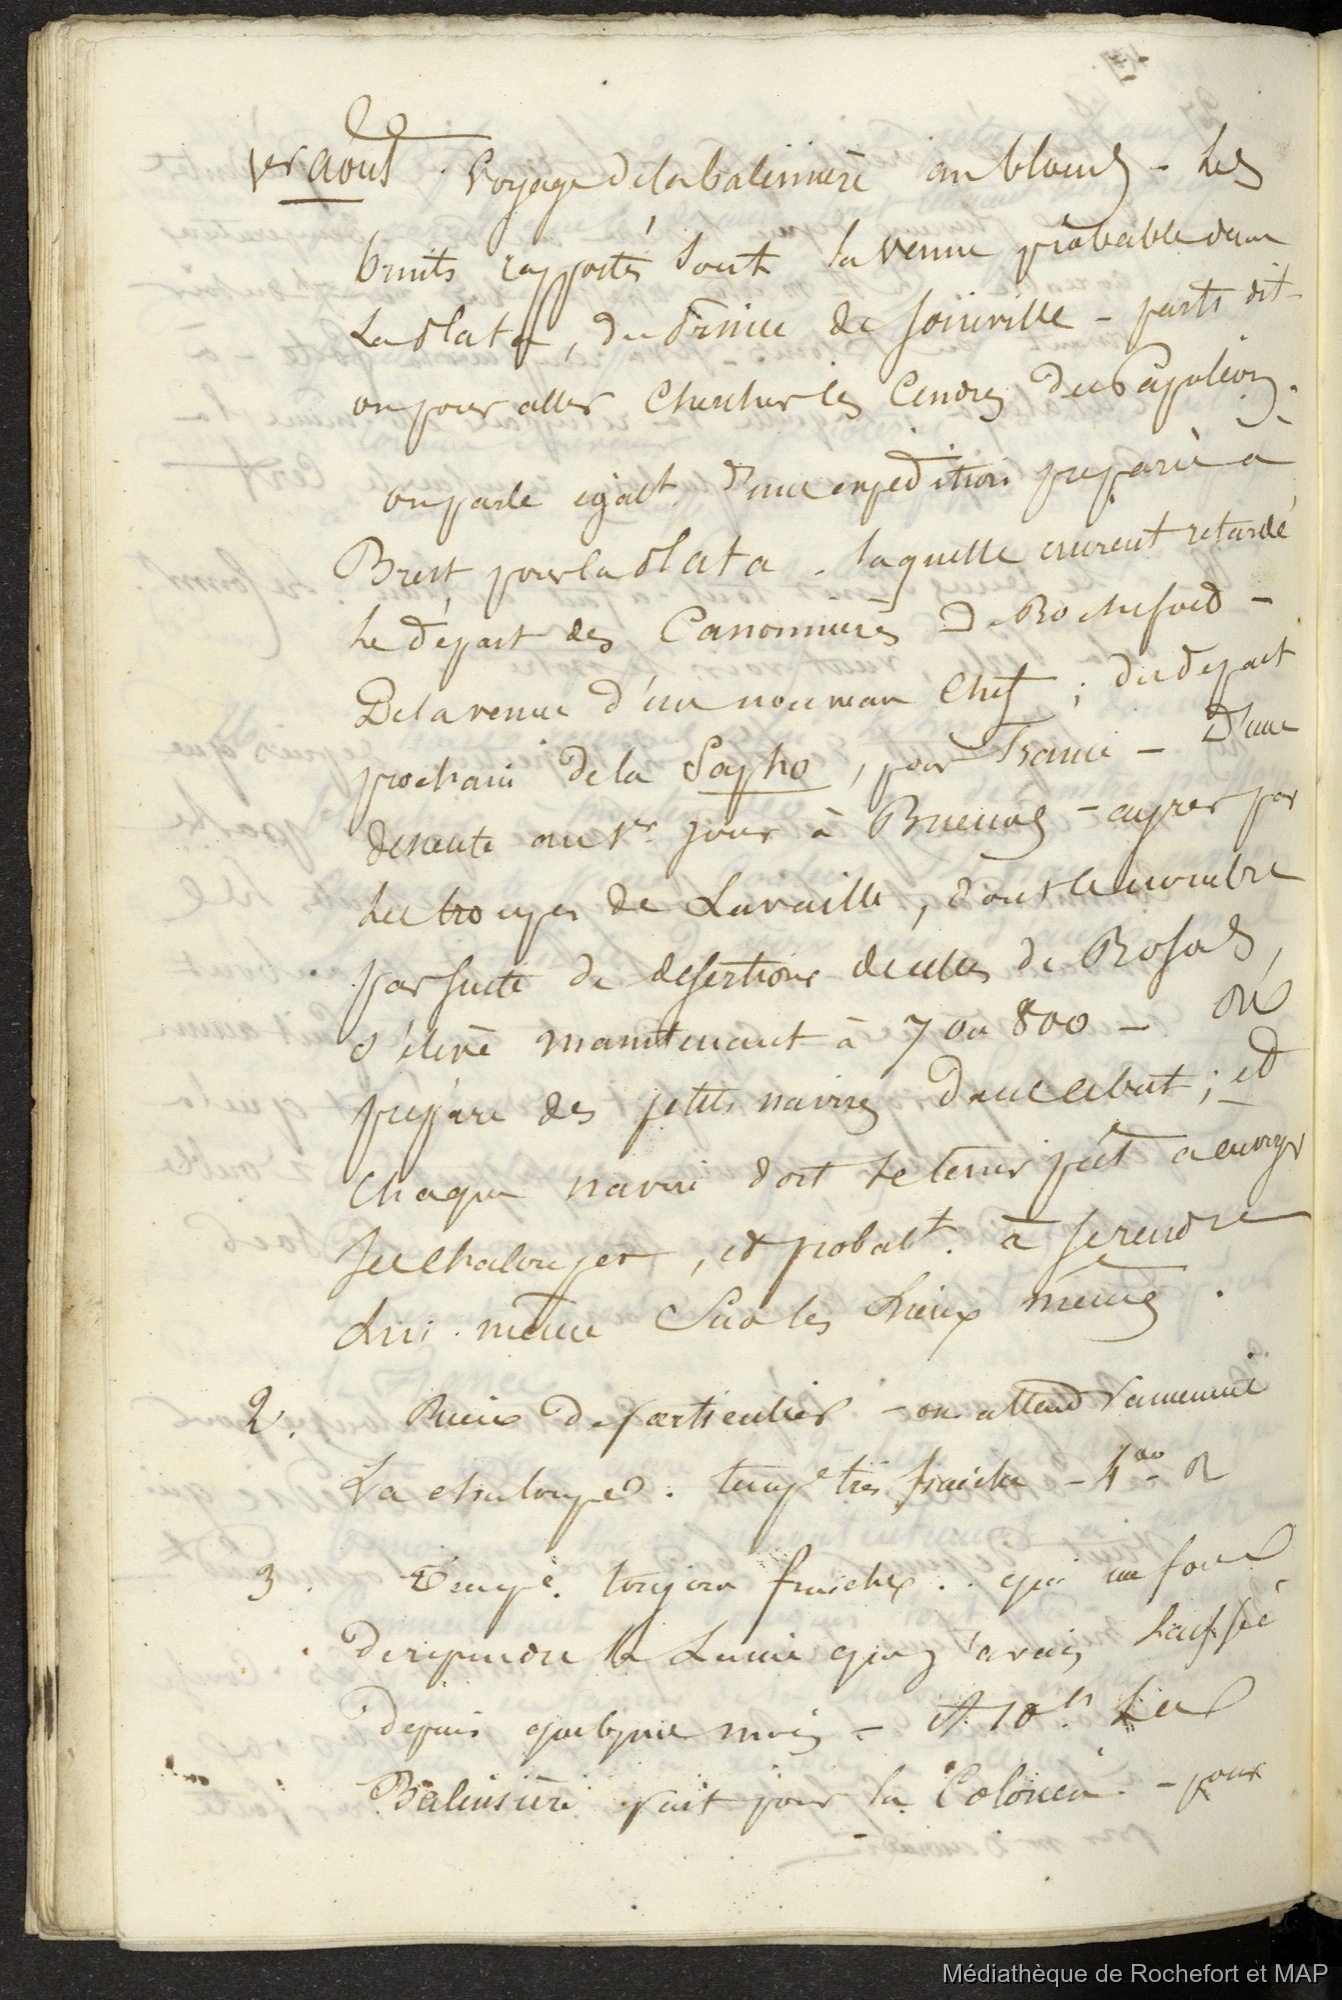 1er aout. Voyage de la baleinière au blocus - Les
bruits rapportés sont la venue probable dans
La Plata, du Prince de Joinville - parti dit-
on pour aller Chercher les Cendres de Napoléon.
on parle egalt. d'une expedition preparée a
Brest pour la Plata. laquelle auroit retardé
Le départ des Canonnières de Rochefort -
De la venue d'un nouveau Chef; du depart
prochain de la Sapho, pour France - D'une
descente au 1er jour à Buenos-ayres par
Les troupes de Lavalle, dont le nombre
par suite de desertions de celles de Rosas,
s'élève maintenant à 7 ou 800 - On
prépare des petits navires dans ce but; et
Chaque navire doit se tenir prêt a envoyer
ses chaloupes, et probablt. à se rendre
Lui-même sur les Lieux mêmes.
2. Rien de particulier - on attend vainement
La chaloupe. tempe très fraiche - 4°
3. Tempe. toujours fraiche.. qui me force
de reprendre la Laine que j'avais laissé
depuis quelques mois - A 10h. La
Baleinière part pour la Colonia. - pour
Médiathèque de Rochefort et MAP